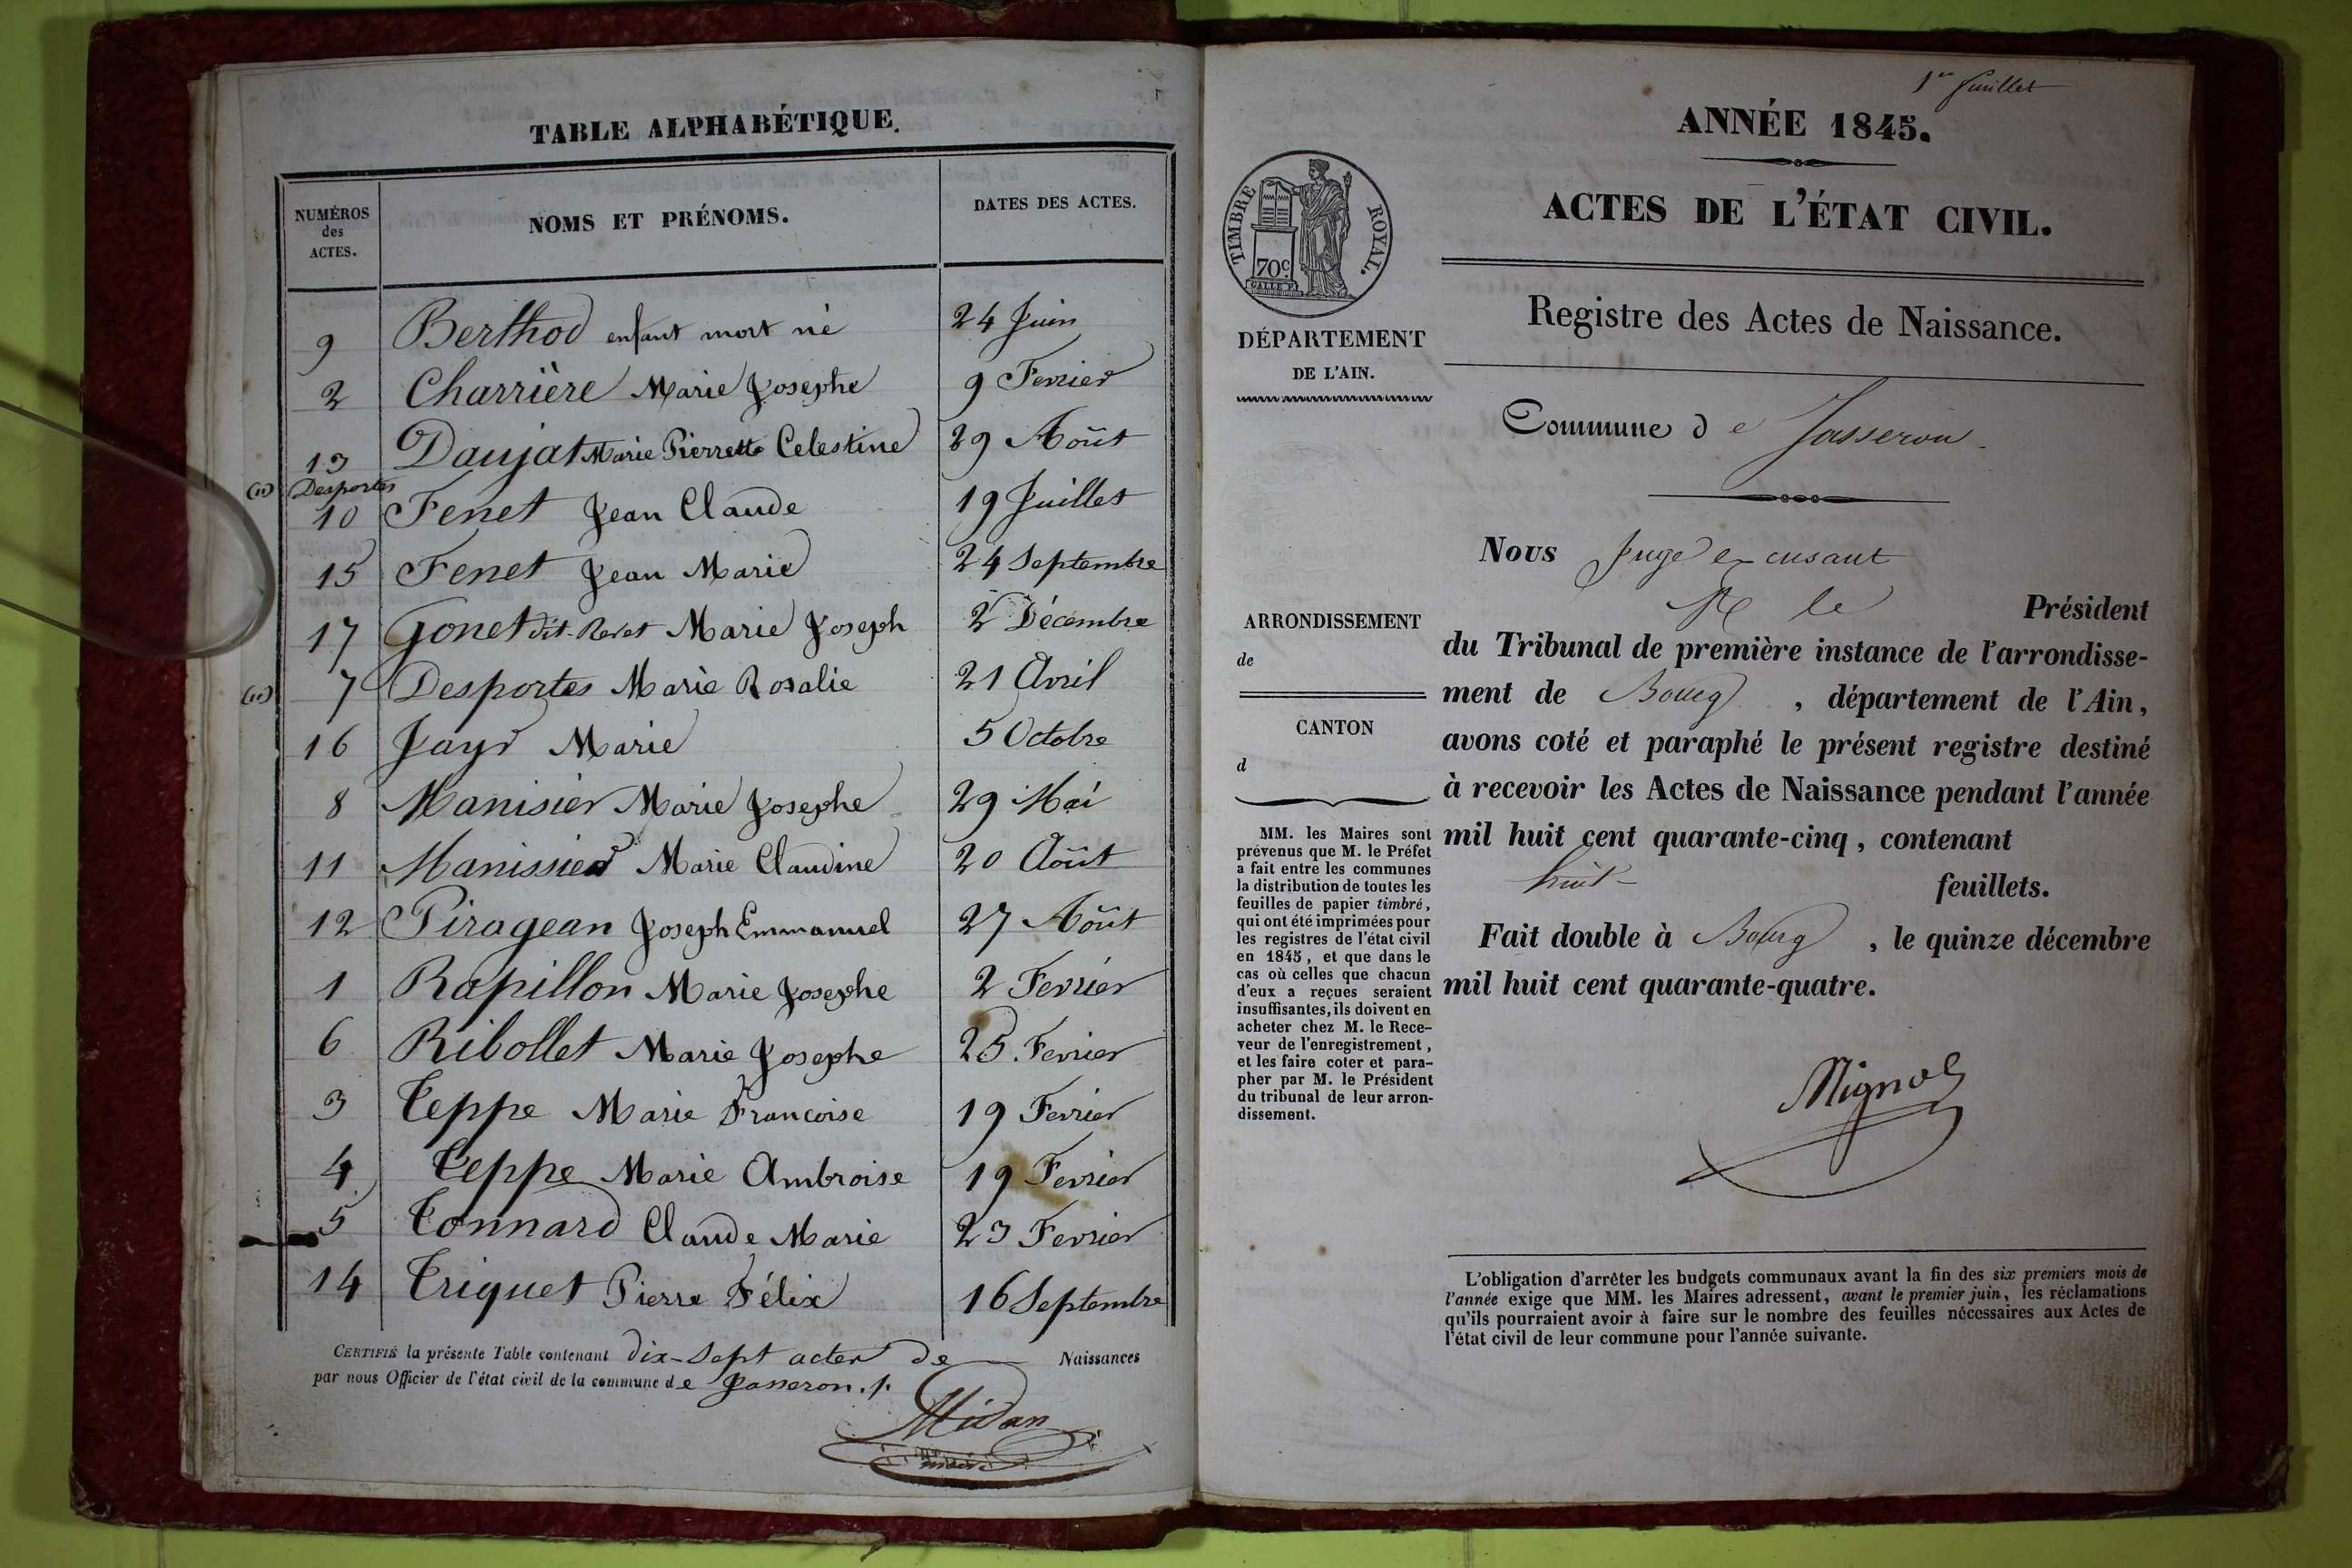 TABLE ALPHABÉTIQUE.
NUMÉROS des ACTES. NOMS ET PRÉNOMS. DATES DES ACTES.
9 Berthod enfant mort né 24 Juin
2 Charrière Marie Josephe 9 Fevrier
13 Daujat Marie Pierrette Celestine 29 Août
(1) Desportes
10 Fenet Jean Claude 19 Juillet
15 Fenet Jean Marie 24 Septembre
17 Gonet dit Revet Marie Joseph 2 Décembre
(1) 7 Desportes Marie Rosalie 21 Avril
16 Jayr Marie 5 Octobre
8 Manisier Marie Josephe 29 Mai
11 Manissier Marie Claudine 20 Août
12 Piragean Joseph Emmanuel 27 Août
1 Rapillon Marie Josephe 2 Fevrier
6 Ribollet Marie Josephe 25 Fevrier
3 Teppe Marie Francoise 19 Fevrier
4 Teppe Marie Ambroise 19 Fevrier
5 Tonnard Claude Marie 23 Fevrier
14 Triquet Pierre Félix 16 Septembre
CERTIFIÉ la présente Table contenant dix-sept actes de Naissances
par nous Officier de l'état civil de la commune de Jasseron ./.
Midan
maire
1er Juillet
ANNÉE 1845.
ACTES DE L'ÉTAT CIVIL.
TIMBRE ROYAL.
70c
Registre des Actes de Naissance.
DÉPARTEMENT
DE L'AIN.
Commune de Jasseron
ARRONDISSEMENT
de
CANTON
d
MM. les Maires sont
prévenus que M. le Préfet
a fait entre les communes
la distribution de toutes les
feuilles de papier timbré,
qui ont été imprimées pour
les registres de l'état civil
en 1845, et que dans le
cas où celles que chacun
d'eux a reçues seraient
insuffisantes, ils doivent en
acheter chez M. le Rece-
veur de l'enregistrement,
et les faire coter et para-
pher par M. le Président
du tribunal de leur arron-
dissement.
Nous Juge
le Président
du Tribunal de première instance de l'arrondisse-
ment de Bourg, département de l'Ain,
avons coté et paraphé le présent registre destiné
à recevoir les Actes de Naissance pendant l'année
mil huit cent quarante-cinq, contenant
huit feuillets.
Fait double à Bourg, le quinze décembre
mil huit cent quarante-quatre.
L'obligation d'arrêter les budgets communaux avant la fin des six premiers mois de
l'année exige que MM. les Maires adressent, avant le premier juin, les réclamations
qu'ils pourraient avoir à faire sur le nombre des feuilles nécessaires aux Actes de
l'état civil de leur commune pour l'année suivante.